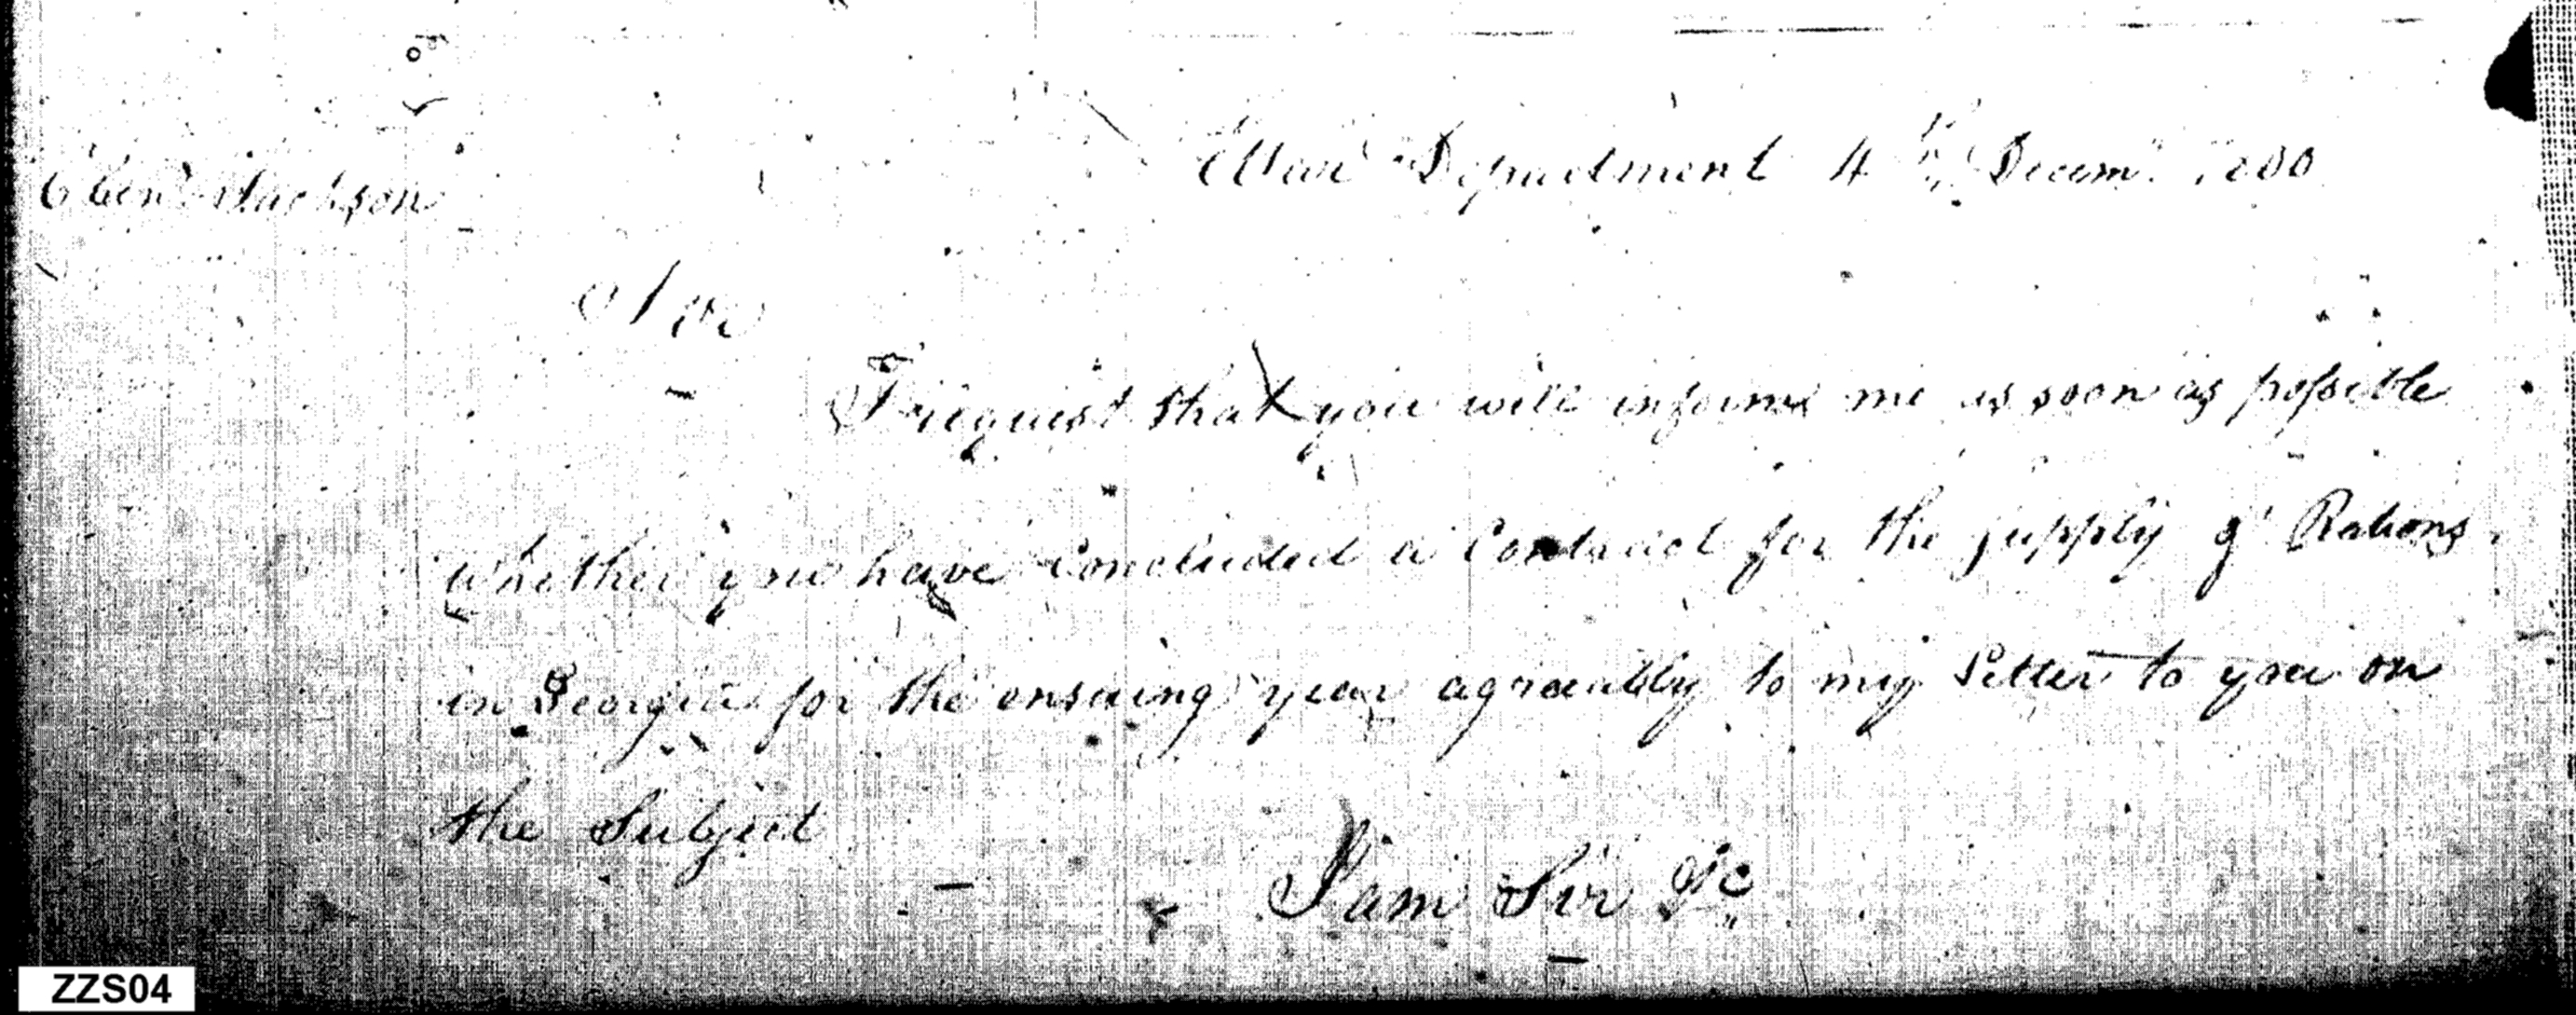 War Department 4th Decemr. 1800
Ebenr. Jackson
Sir
I request that you will inform me as soon as possible
whether you have concluded a Contract for the supply of Rations
in Georgia for the ensuing year agreeably to my Letter to you on
the Subject
I am Sir &c
ZZS04